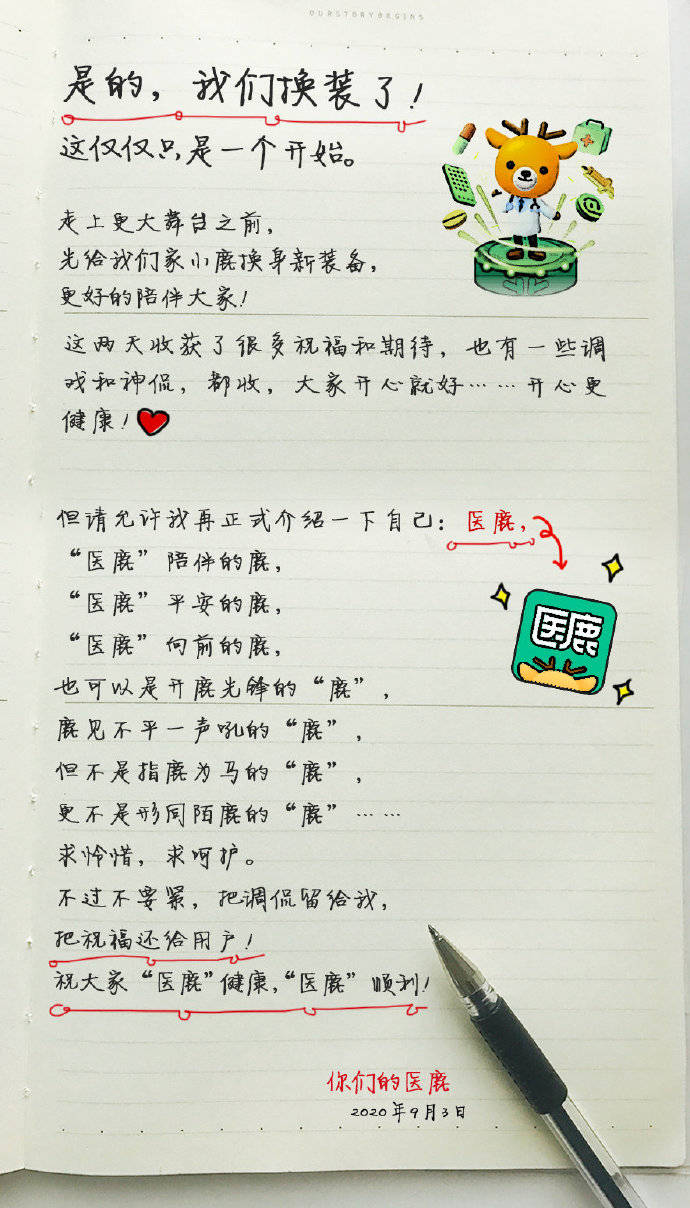 OURSTORYBEGINS
是的，我们换装了！
这仅仅只是一个开始。
走上更大舞台之前，
先给我们家小鹿换身新装备，
更好的陪伴大家！
这两天收获了很多祝福和期待，也有一些调
戏和神侃，都收，大家开心就好……开心更
健康！
但请允许我再正式介绍一下自己：医鹿，
“医鹿”陪伴的鹿，
“医鹿”平安的鹿，
“医鹿”向前的鹿，
医鹿
也可以是开鹿先锋的“鹿”，
鹿见不平一声吼的“鹿”，
但不是指鹿为马的“鹿”，
更不是形同陌鹿的“鹿”……
求怜惜，求呵护。
不过不要紧，把调侃留给我，
把祝福还给用户！
祝大家“医鹿”健康，“医鹿”顺利！
你们的医鹿
2020年9月3日